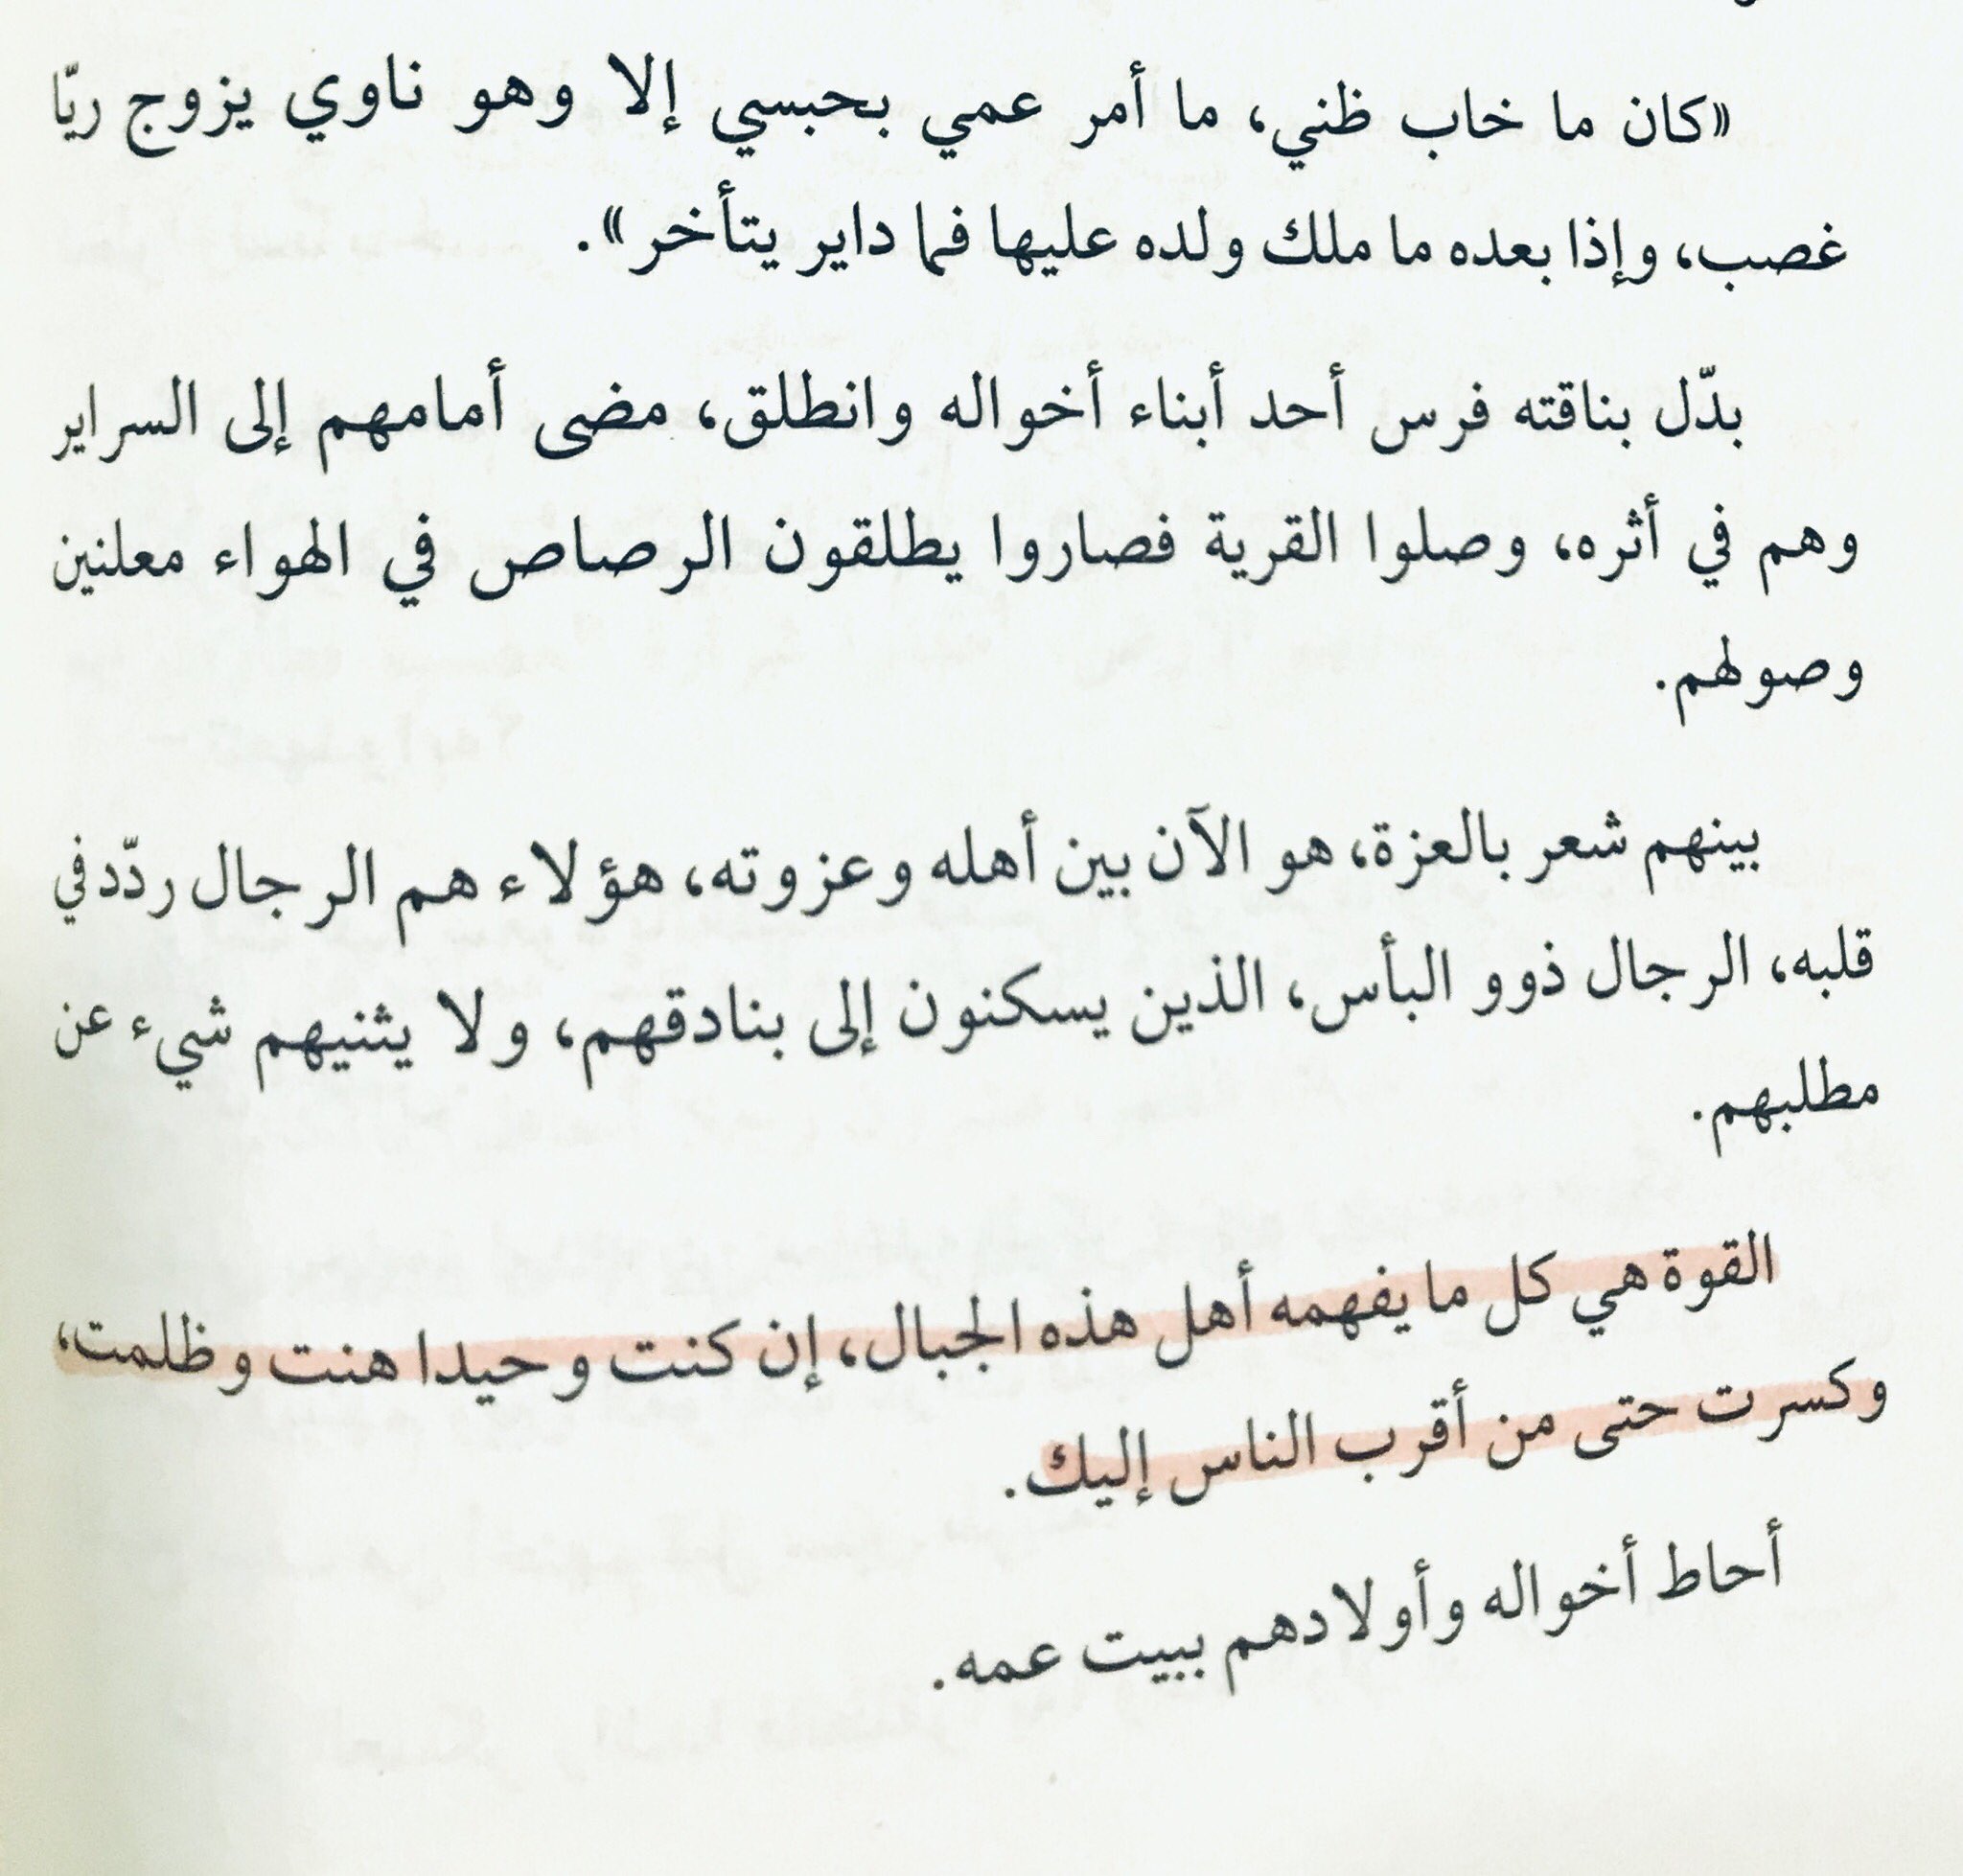 «كان ما خاب ظني، ما أمر عمي بحبسي إلا وهو ناوي يزوج ريّا
غصب، وإذا بعده ما ملك ولده عليها فما داير يتأخر».
بدّل بناقته فرس أحد أبناء أخواله وانطلق، مضى أمامهم إلى السراير
وهم في أثره، وصلوا القرية فصاروا يطلقون الرصاص في الهواء معلنين
وصولهم.
بينهم شعر بالعزة، هو الآن بين أهله وعزوته، هؤلاء هم الرجال ردّد في
قلبه، الرجال ذوو البأس، الذين يسكنون إلى بنادقهم، ولا يثنيهم شيء عن
مطلبهم.
القوة هي كل ما يفهمه أهل هذه الجبال، إن كنت وحيدا هنت وظلمت،
وكسرت حتى من أقرب الناس إليك.
أحاط أخواله وأولادهم ببيت عمه.